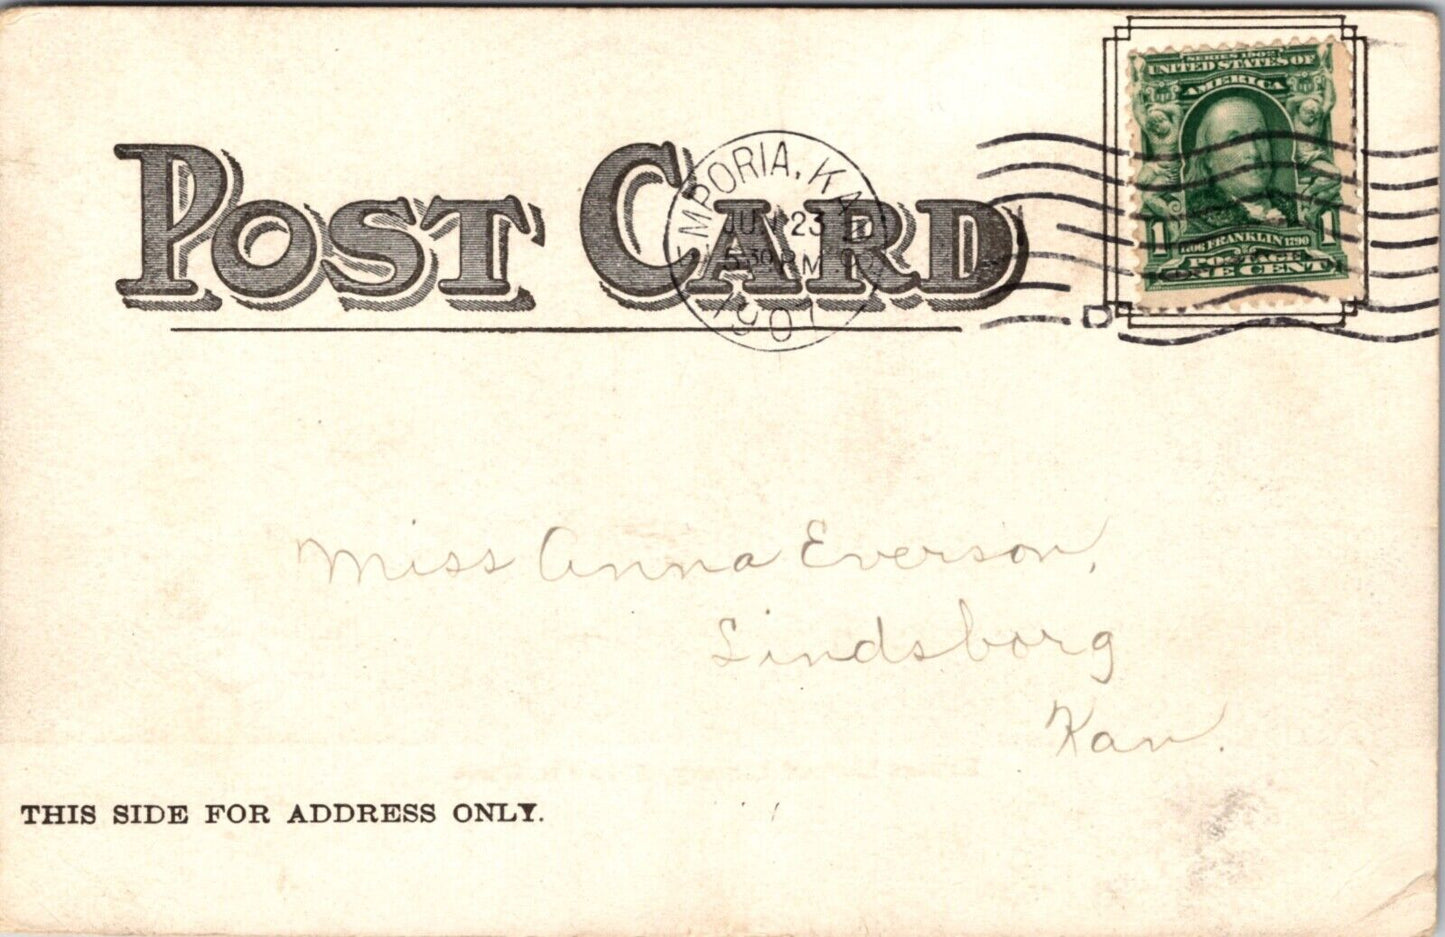 POST CARD
EMPORIA, KANS.
JUN 23
5 30 PM
1907
D
SERIES 1902
UNITED STATES OF
AMERICA
1706 FRANKLIN 1790
1 1
POSTAGE
ONE CENT
Miss Anna Everson,
Lindsborg
Kan.
THIS SIDE FOR ADDRESS ONLY.